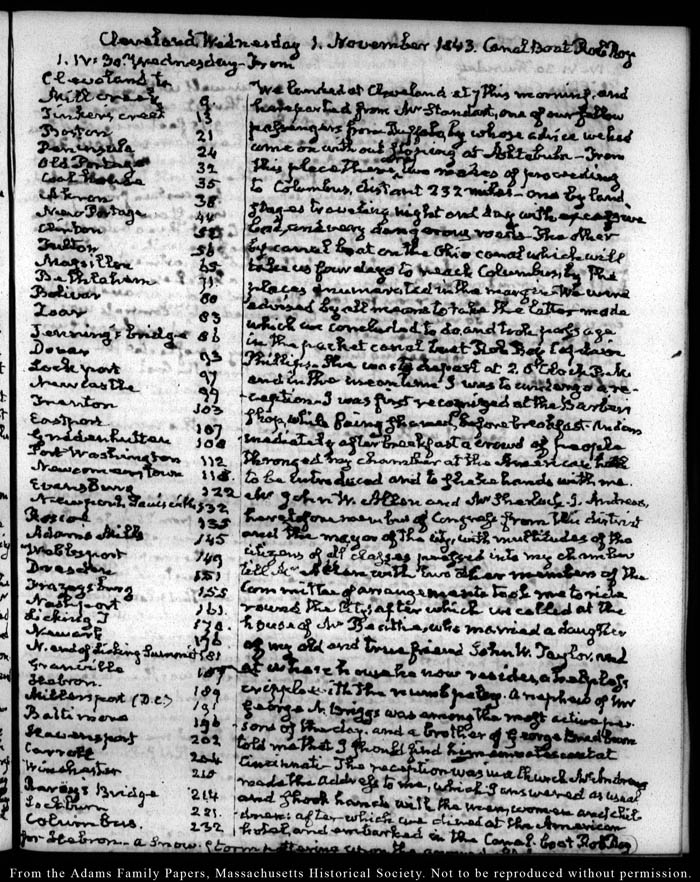 Cleveland Wednesday 1. November 1843. Canal Boat Rob Roy
1. IV:30. Wednesday. From
Cleveland to
Mill creek 9
Tinkers creek 13
Boston 21
Peninsula 24
Old Portage 32
Coal House 35
Akron 38
New Portage 44
Clinton
Fulton 56
Massillon 65
Bethlehem 71
Bolivar 80
Zoar 83
Jenning's bridge 86
Dover 93
Lockport 97
Newcastle 99
Trenton 103
Eastport 107
Gnadenhutten 108
Port Washington 112
Newcomerstown 118.
Evansburg 122
Newport 132
Roscoe 135
Adams Mills 145
Webbsport 149
Dresden 151
Frazeysburg 155
Nashport 161.
Licking 170.
Newark 176
N. end of Licking Summit 181
Granville 187
Hebron
Millersport (D.C.) 189
Baltimore 191
Havensport 196
Carroll 202
Winchester 204
210
Bridge 214
Lockburn 221.
Columbus. 232
We landed at Cleveland at 7 this morning, and
here parted from Mr Standart, one of our fellow
passengers from Buffalo, by whose advice we had
come on without stopping at Ashtebula. From
this place there are two modes of proceeding
to Columbus, distant 232 miles. one by land
stages travelling night and day with excessive
bad, and very dangerous roads. The other
by canal boat on the Ohio canal which will
take us four days to reach Columbus, by the
places enumerated in the margin. We were
advised by all means to take the latter mode
which we concluded to do, and took passage
in the packet canal boat Rob Roy Captain
Phillips. She was to depart at 2 O'Clock P.M.
and in the meantime I was to undergo a re-
ception. I was first recognized at the Barbers
shop, while being shaved, before breakfast. and im
mediately after breakfast a crowd of people
thronged my chamber at the American hotel
to be introduced and to shake hands with me.
Mr John W. Allen and Mr Sherlock J. Andrews,
heretofore members of Congress from this district
and the mayor of the city, with multitudes of the
citizens of all classes pressed into my chamber
till Mr Allen with two other members of the
Committee of arrangements took me to ride
round the City, after which we called at the
house of Mr Beattie, who married a daughter
of my old and true friend John W. Taylor, and
at whose house he now resides, a helpless
cripple with the numb palsy. A nephew of Mr
George N. Briggs was among the most active per-
sons of the day. and a brother of George
told me that I should find him at
Cincinnati. The reception was in a church Mr Andrews
made the Address to me, which I answered as usual
and shook hands with the men, women and chil
dren: after which we dined at the American
hotel, and embarked in the Canal-boat Rob Roy
for Hebron. a snow-storm
From the Adams Family Papers, Massachusetts Historical Society. Not to be reproduced without permission.